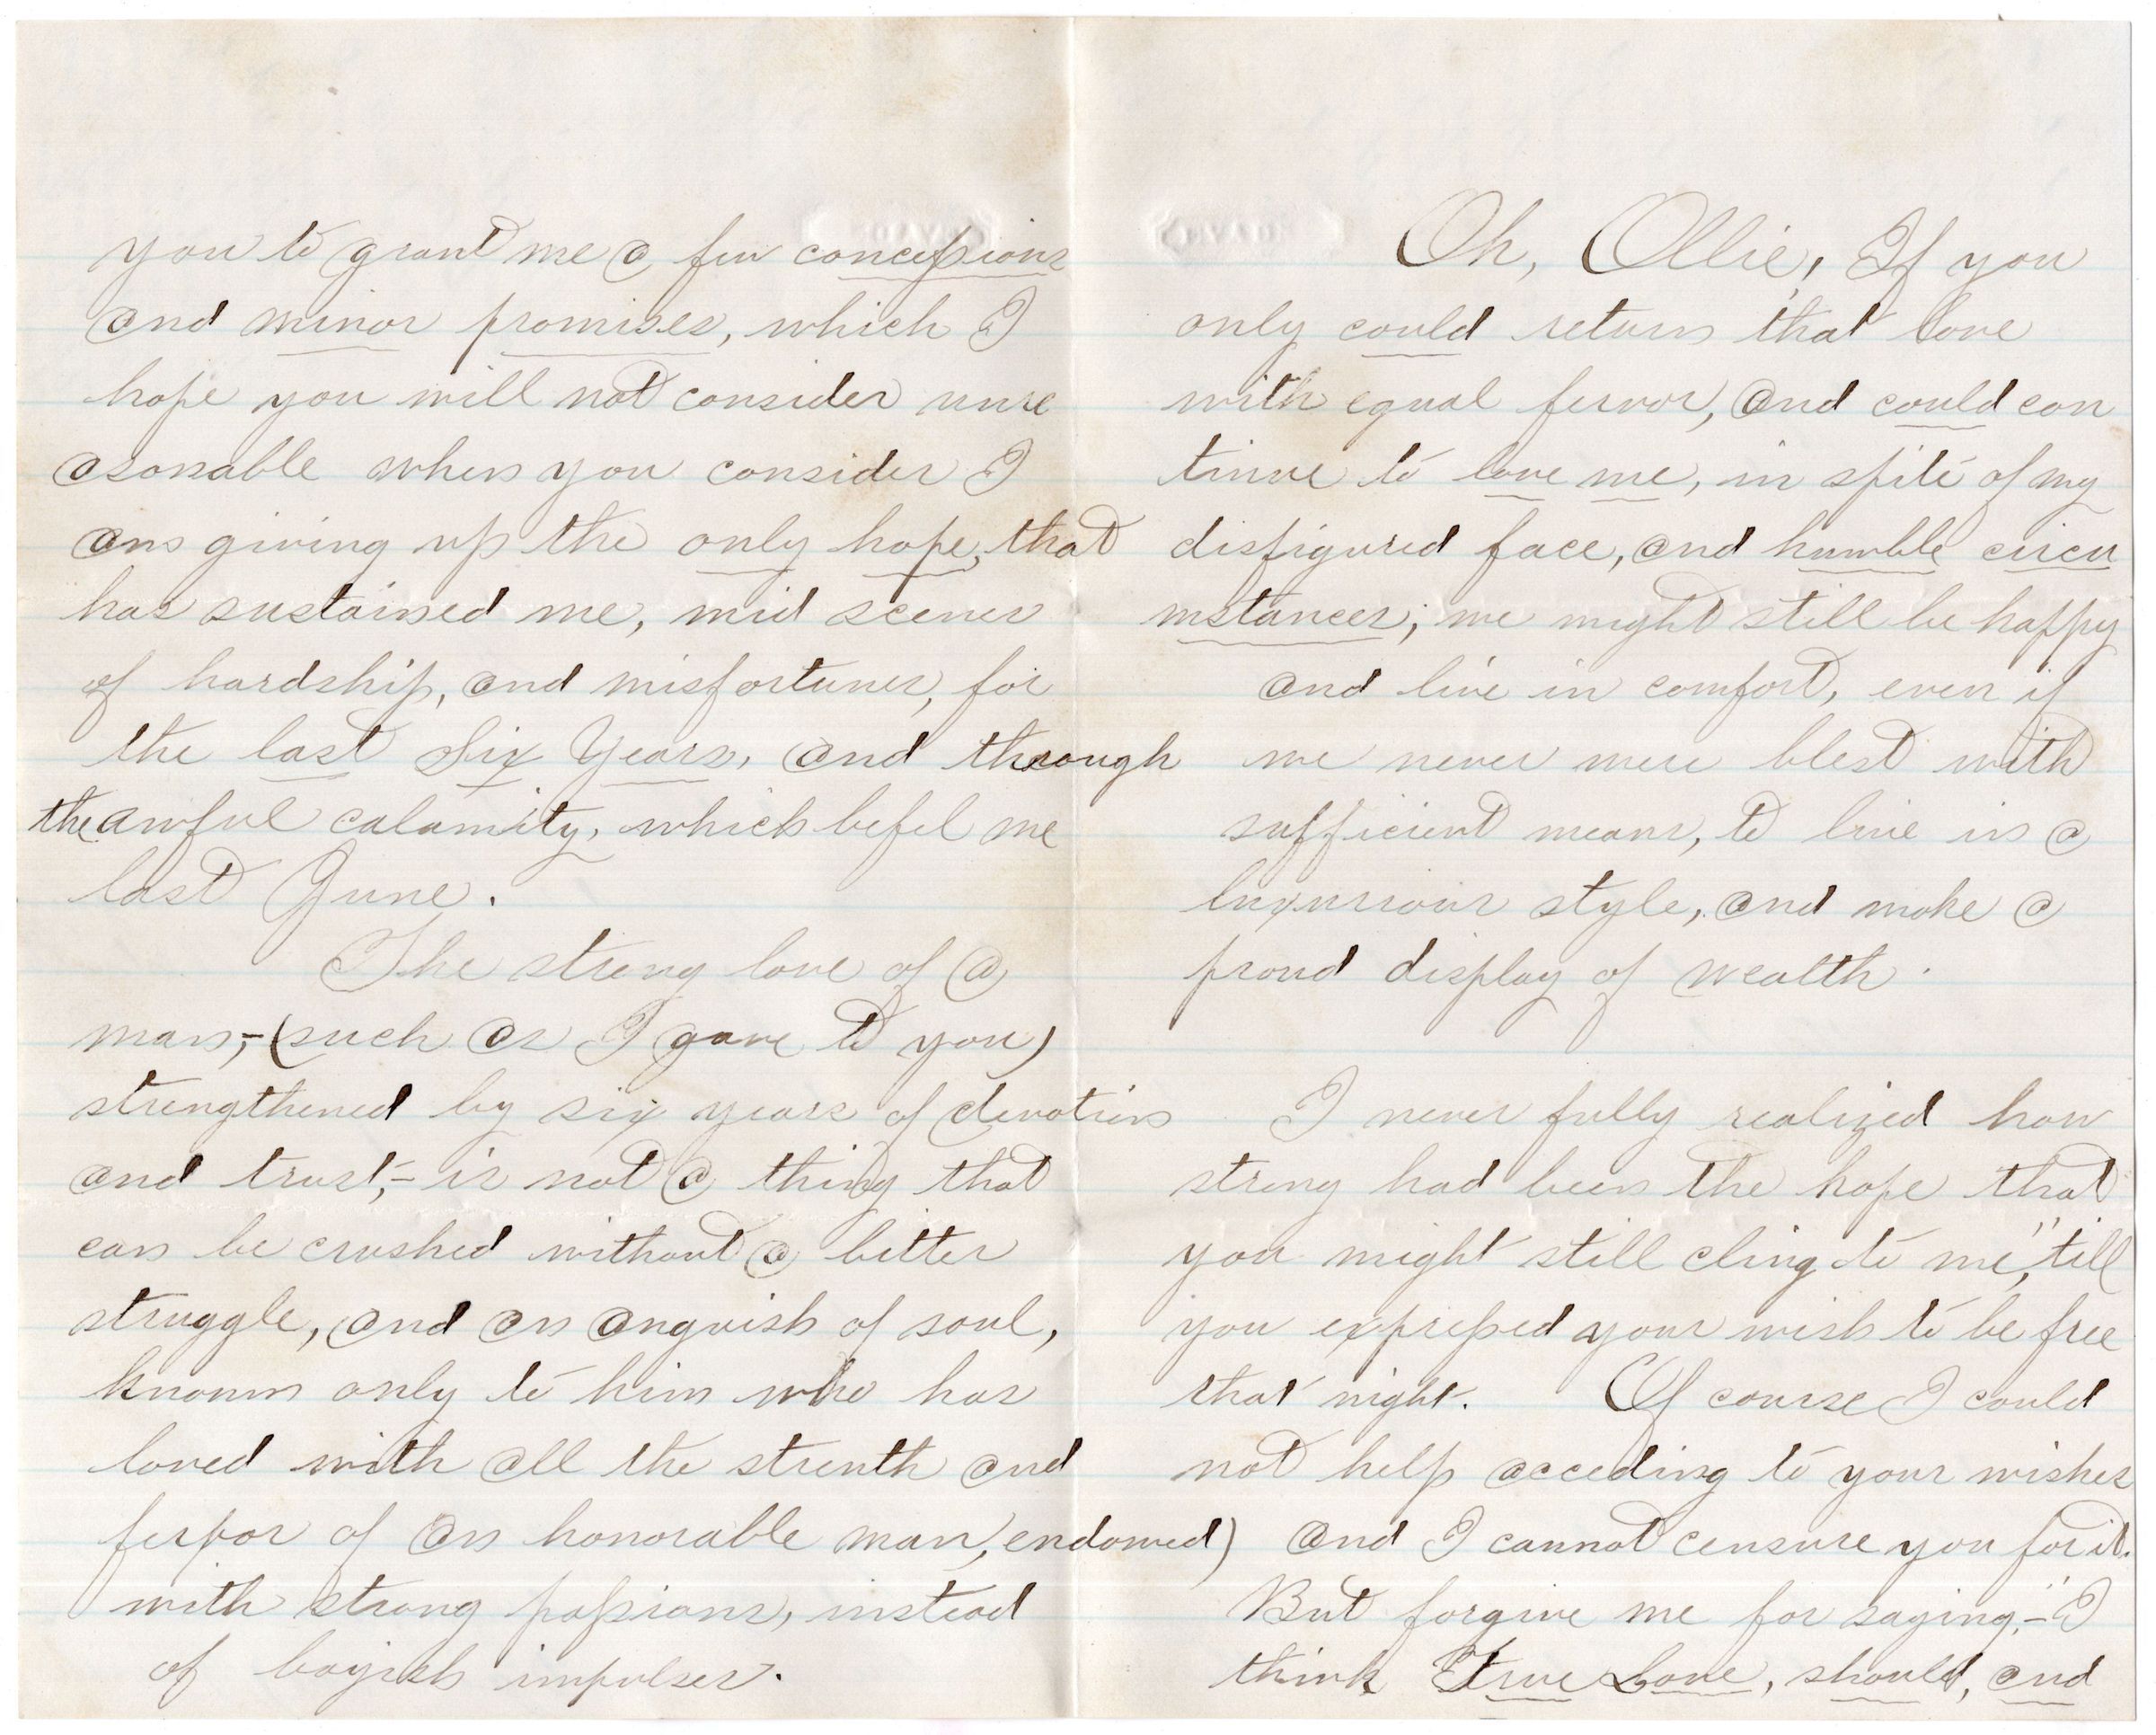 you to grant me a few concessions
and minor promises, which I
hope you will not consider unre
asonable when you consider I
am giving up the only hope, that
has sustained me, mid scenes
of hardship, and misfortunes, for
the last Six Years, and through
the awful calamity, which befel me
last June.
The strong love of a
man,-(such as I gave to you)
strengthened by six years of devotion
and trust,- is not a thing that
can be crushed without a bitter
struggle, and an anguish of soul,
known only to him who has
loved with all the strenth and
fervor of an honorable man, endowed)
with strong passions, instead
of boyish impulses.
Oh, Ollie, If you
only could return that love
with equal fervor, and could con
tinue to love me, in spite of my
disfigured face, and humble circu
mstances; we might still be happy
and live in comfort, even if
we never were blest with
sufficient means, to live in a
luxurious style, and make a
proud display of wealth.
I never fully realized how
strong had been the hope that
you might still cling to me, "till
you expressed your wish to be free
that night. Of course I could
not help acceding to your wishes
and I cannot censure you for it.
But forgive me for saying,-"I
think True Love, should, and